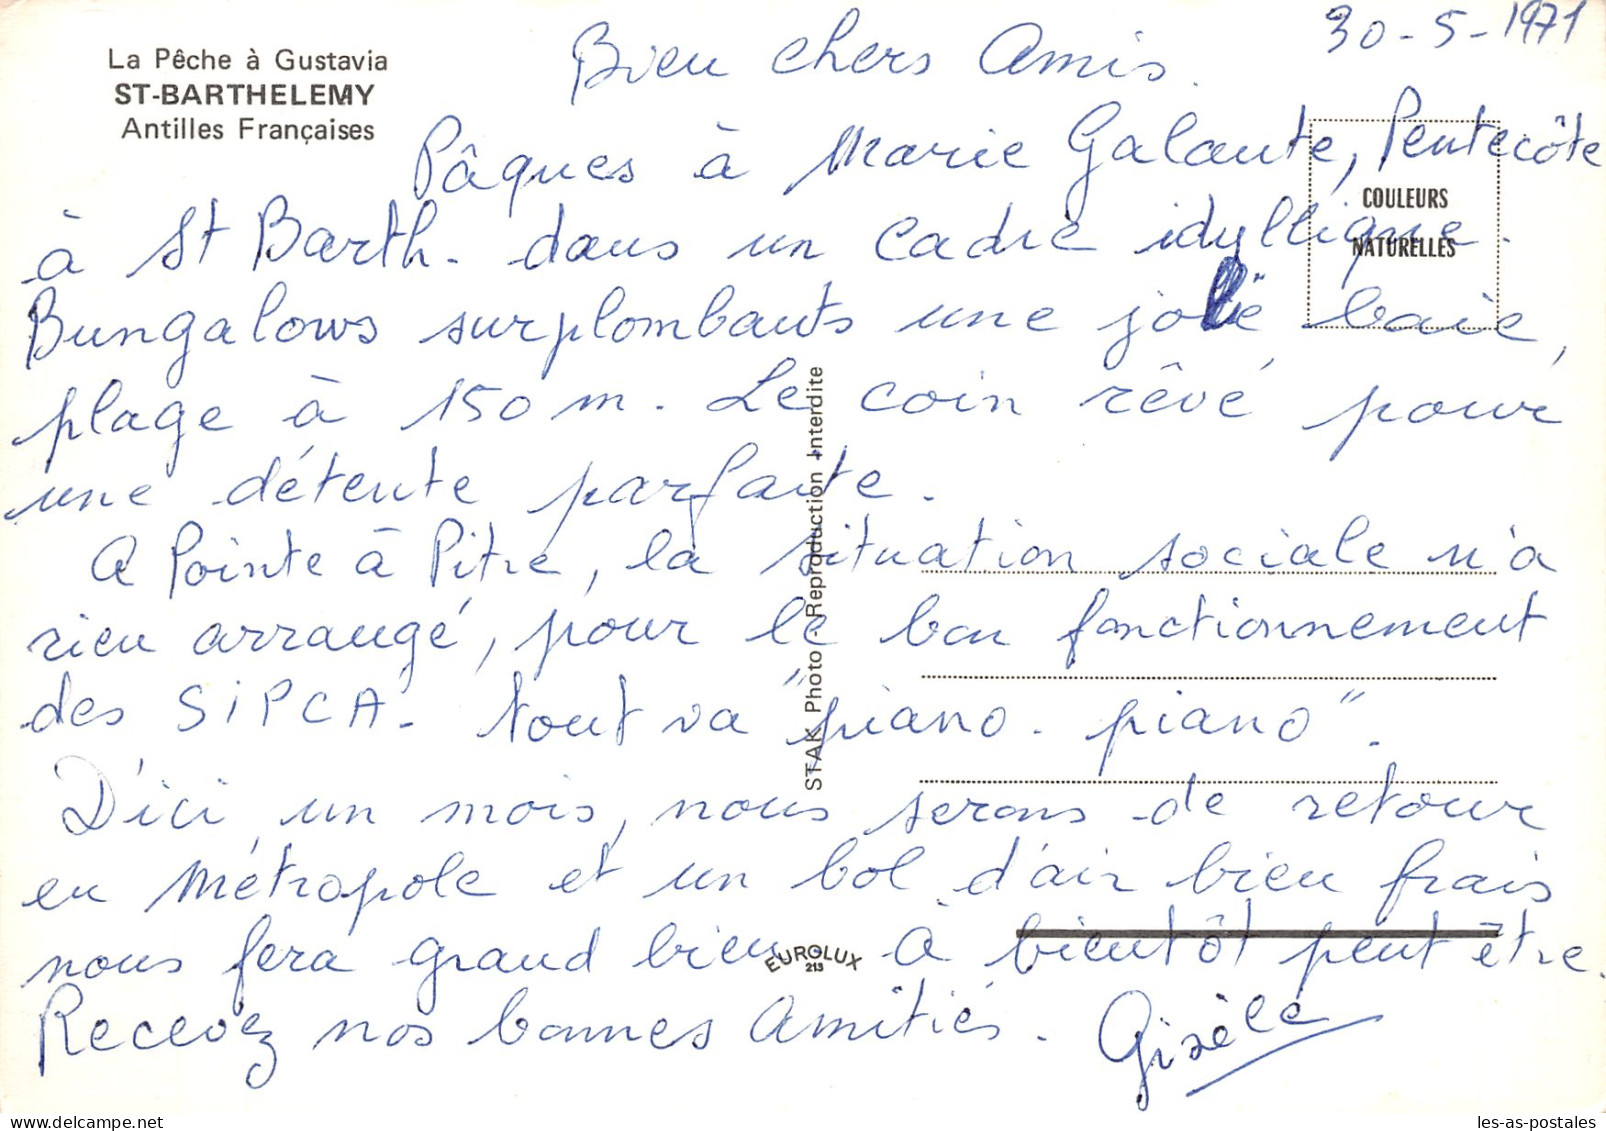 La Pêche à Gustavia
ST-BARTHELEMY
Antilles Françaises
30-5-1971
Bien chers Amis.
Pâques à Marie Galante, Pentecôte
à St Barth. dans un cadre idyllique.
Bungalows surplombants une jolie baie,
plage à 150 m. Le coin rêvé pour
une détente parfaite.
A Pointe à Pitre, la situation sociale n'a
rien arrangé, pour le bon fonctionnement
des SIPCA. tout va "piano. piano".
D'ici un mois, nous serons de retour
en Métropole et un bol d'air bien frais
nous fera grand bien. à bientôt peut être.
Recevez nos bonnes Amitiés. Gisèle
COULEURS
NATURELLES
STAK Photo - Reproduction Interdite
EUROLUX
213
les-as-postales